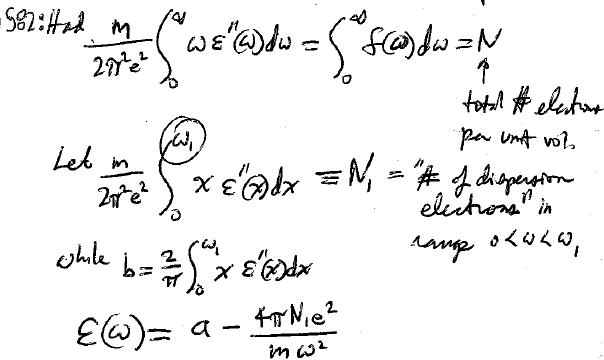 §82: Had m/2π²e² ∫₀^∞ ω ε″(ω)dω = ∫₀^∞ f(ω)dω = N
↑
total # electrons
per unit vol.
Let m/2π²e² ∫₀^ω₁ x ε″(x)dx ≡ N₁ = "# of dispersion
electrons" in
range 0<ω<ω₁
while b = 2/π ∫₀^ω₁ x ε″(x)dx
ε(ω) = a - 4πN₁e²/mω²